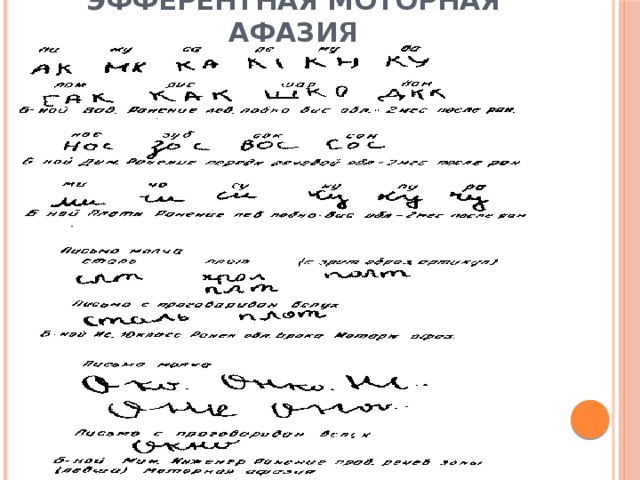 ЭФФЕРЕНТНАЯ МОТОРНАЯ
АФАЗИЯ
пи му са пе му ва
АК МК КА КІ КН КУ
лом лис шар дом
САК КАК ШКО ДКК
Б-ной Вав. Ранение лев. лобно вис обл. - 2 мес после ран.
нос зуб сок сон
Нос Зос ВОС СОС
Б-ной Дим. Ранение передн речевой обл - 2 мес после ран
ми чо су ку пу ра
ми чи си ку ку чу
Б-ной Платн Ранение лев лобно-вис обл - 2 мес после ран
Письмо молча
сталь плот (с зрит образ артикул)
слт хрол полт
плт
Письмо с проговариван вслух
сталь плот
Б-ной Ис. 10 класс Ранен обл. Брока Моторн афаз.
Письмо молча
Око. Онко. Ис..
Оне Опог..
Письмо с проговариван вслух
Окно
Б-ной Мин. Инженер Ранение прав. речев зоны
(левша) Моторная афазия